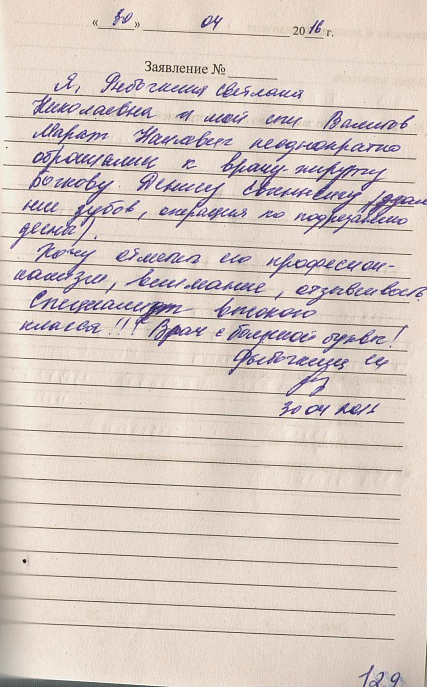 « 30 » 04 2016 г.
Заявление №
Я, Светлана
Николаевна и мой сын Валитов
Марат Наилевич неоднократно
обращались к врачу-хирургу
Бочкову Денису (удале
ние зубов, операция по подрезанию
десны).
Хочу отметить его професион-
нализм, внимание, отзывчивость
Специалист высокого
класса!!! Врач с большой буквы!
30 04 2016
129